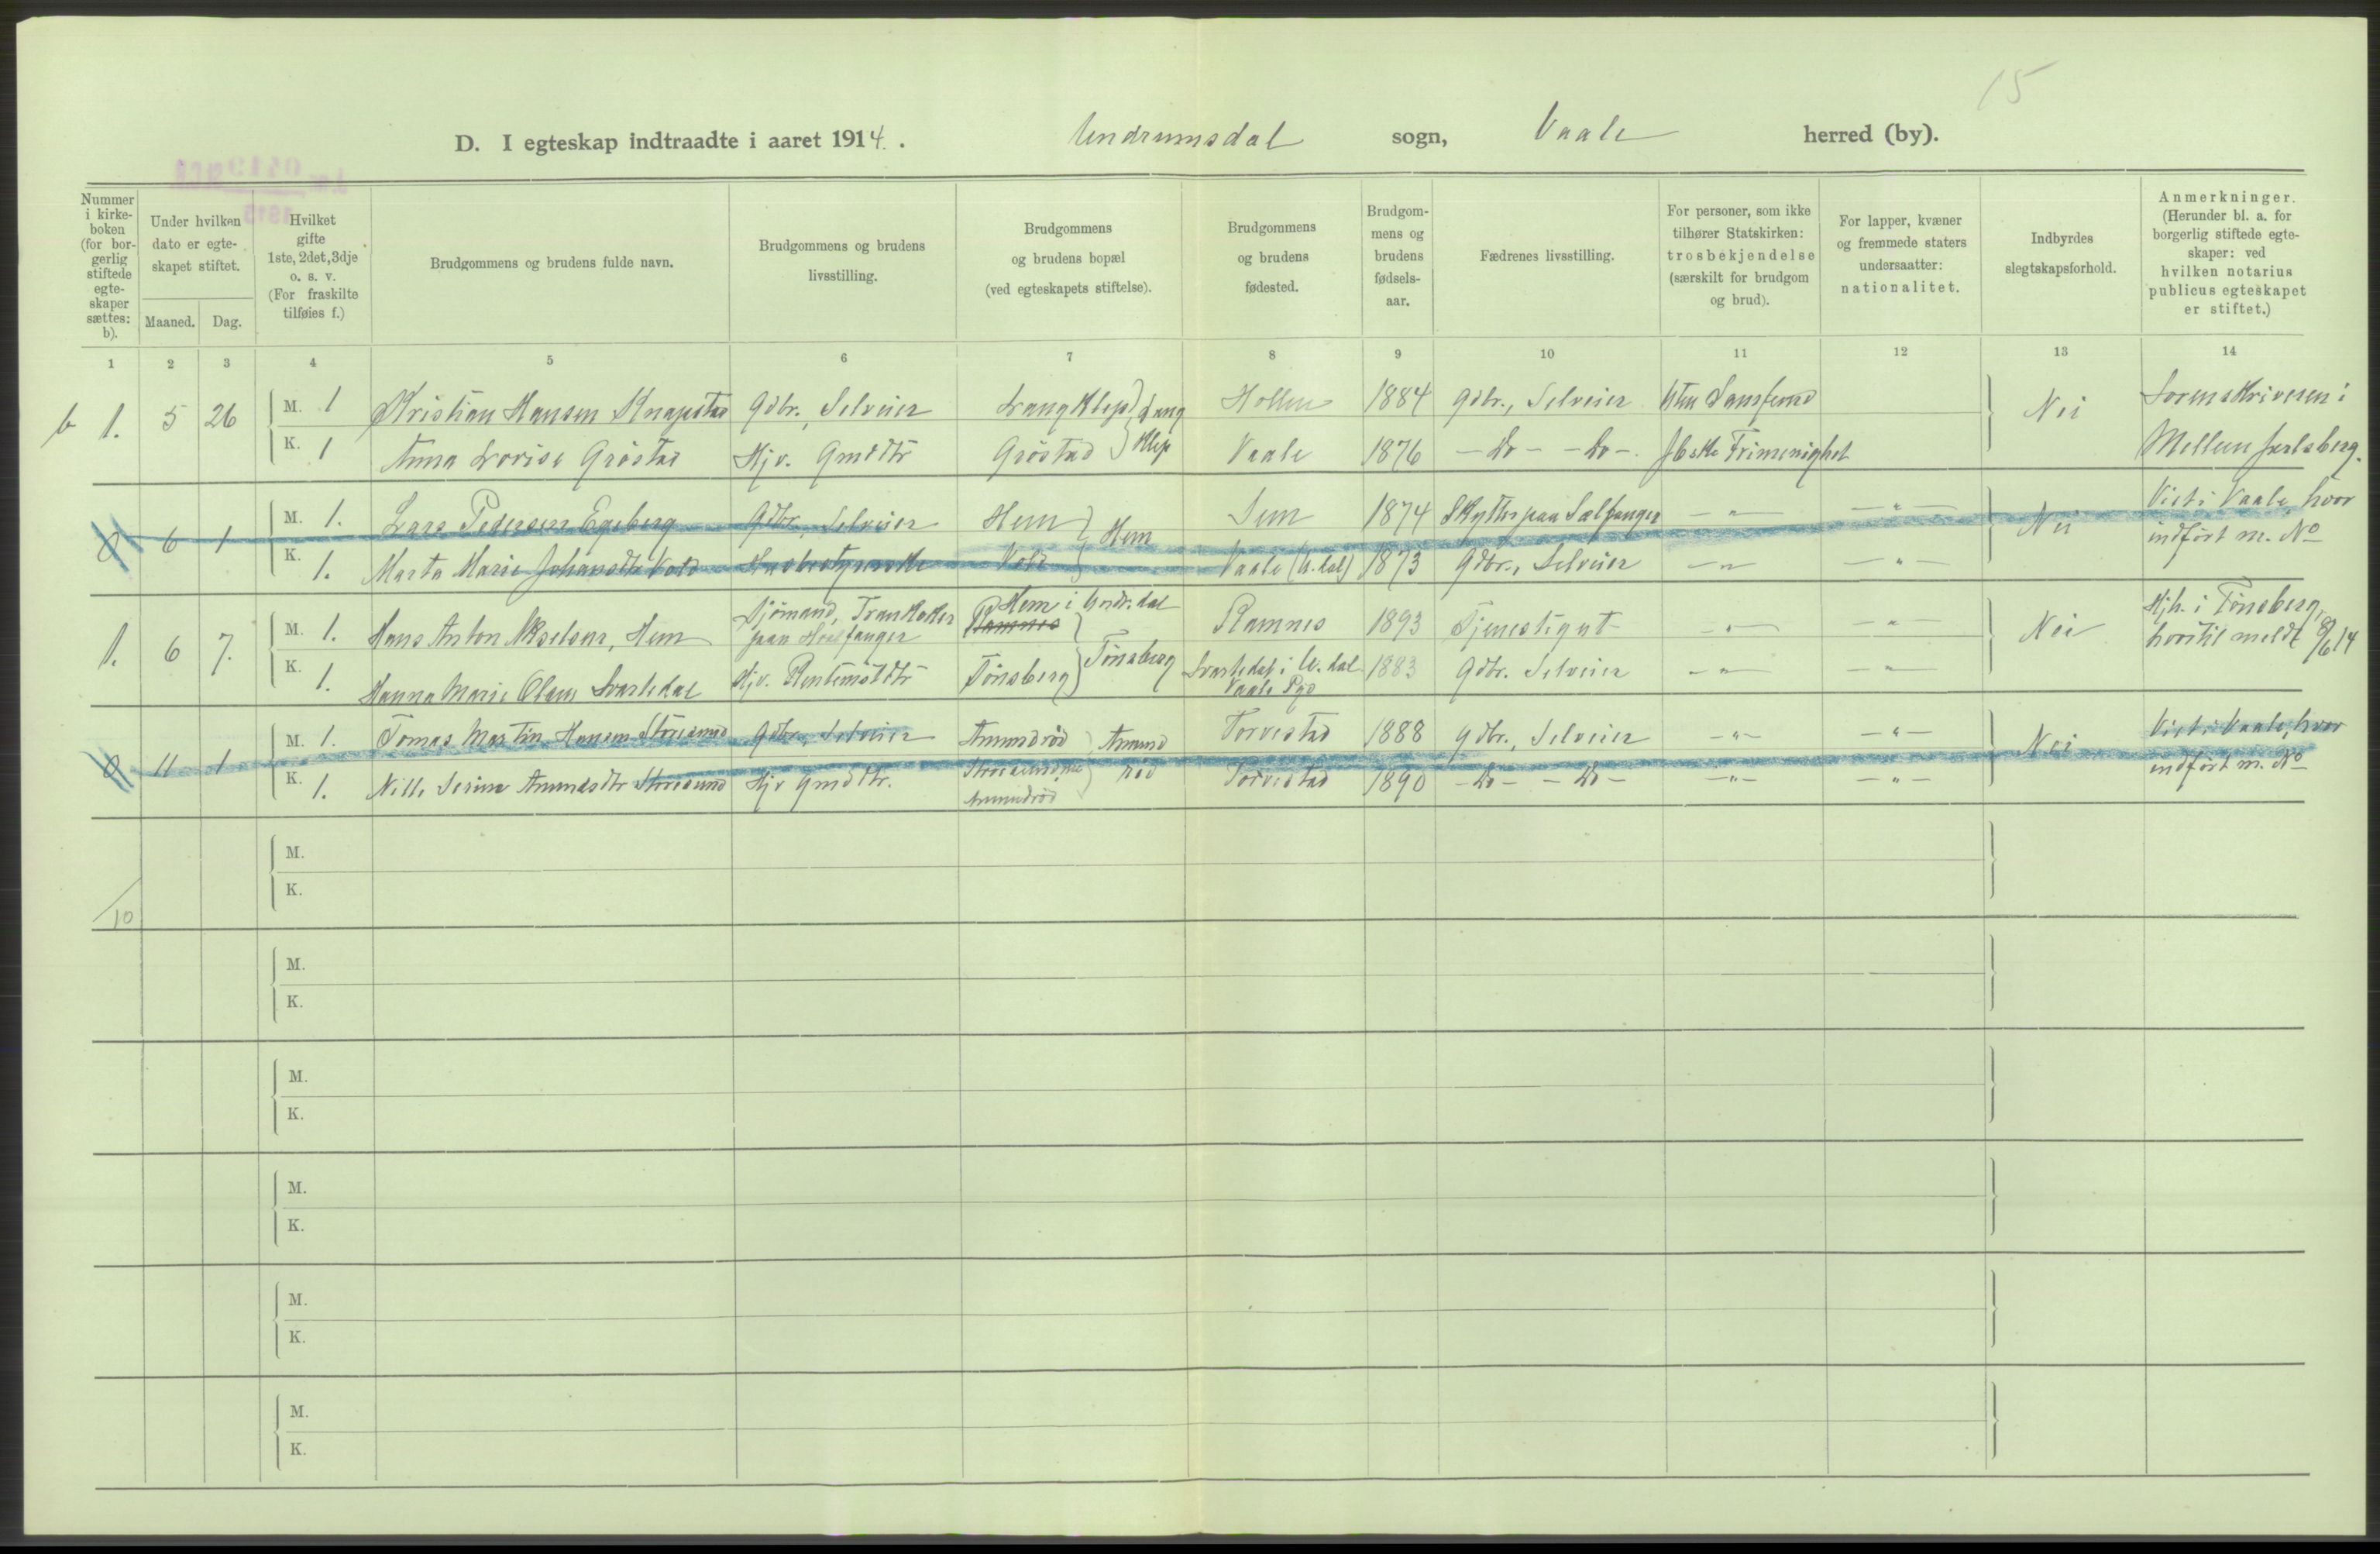 15
D. I egteskap indtraadte i aaret 1914. Undrumsdal sogn, Vaale herred (by).
Nummer i kirke-boken (for bor-gerlig stiftede egte-skaper sættes: b).
Under hvilken dato er egte-skapet stiftet.
Maaned. Dag.
Hvilket gifte 1ste, 2det, 3dje o. s. v. (For fraskilte tilføies f.)
Brudgommens og brudens fulde navn.
Brudgommens og brudens livsstilling.
Brudgommens og brudens bopæl (ved egteskapets stiftelse).
Brudgommens og brudens fødested.
Brudgom-mens og brudens fødsels-aar.
Fædrenes livsstilling.
For personer, som ikke tilhører Statskirken: trosbekjendelse (særskilt for brudgom og brud).
For lapper, kvæner og fremmede staters undersaatter: nationalitet.
Indbyrdes slegtskapsforhold.
Anmerkninger. (Herunder bl. a. for borgerlig stiftede egte-skaper: ved hvilken notarius publicus egteskapet er stiftet.)
1 2 3 4 5 6 7 8 9 10 11 12 13 14
b 1. 5 26 M. 1 Kristian Hansen Knapstad Gdbr., Selveier Langklep } Lang Hollen 1884 Gdbr., Selveier Nei Sorenskriveren i
K. 1 Anna Lovise Gröstad Hjv. Gmddtr Gröstad klep Vaale 1876 - do - - do -. Frimenighet Mellem Jarlsberg.
0 6 1 M. 1. Lars Pedersen Egeberg Gdbr., Selveier Hem } Hem Sem 1874 Skytter paa Sælfanger - " - - " - Nei Viet i Vaale, hvor
K. 1. Marta Marie Johansdtr Vold Husbestyrerske Vold Vaale (U.dal) 1873 Gdbr., Selveier - " - - " - indført m. No
1. 6 7. M. 1. Hans Anton Akselsen, Hem Sjömand, Trankoker paa Hvalfanger Ramnes Hem i Undr.dal Ramnes 1893 Tjenestegut - " - - " - Nei Kjh. i Tönsberg,
K. 1. Hanna Marie Olsen Svartedal Hjv. Rentemstdtr Tönsberg } Tönsberg Svartedal i U.dal Vaale Pgd 1883 Gdbr. Selveier - " - - " - hvortil meldt 8/6 14
0 11 1 M. 1. Tomas Martin Hansen Storesund Gdbr., Selveier Amundröd } Amund Torvestad 1888 Gdbr., Selveier - " - - " - Nei Viet i Vaale, hvor
K. 1. Nille Serine Amundsdtr Storesund Hjv Gmddtr. Amundröd röd Torvestad 1890 - do - - do - - " - - " - indført m. No
M.
K.
10
M.
K.
M.
K.
M.
K.
M.
K.
M.
K.